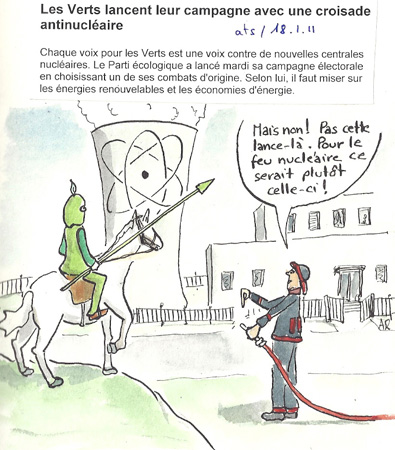 Les Verts lancent leur campagne avec une croisade
antinucléaire
ats / 18.1.11
Chaque voix pour les Verts est une voix contre de nouvelles centrales
nucléaires. Le Parti écologique a lancé mardi sa campagne électorale
en choisissant un de ses combats d'origine. Selon lui, il faut miser sur
les énergies renouvelables et les économies d'énergie.
Mais non! Pas cette
lance-là. Pour le
feu nucléaire ce
serait plutôt
celle-ci!